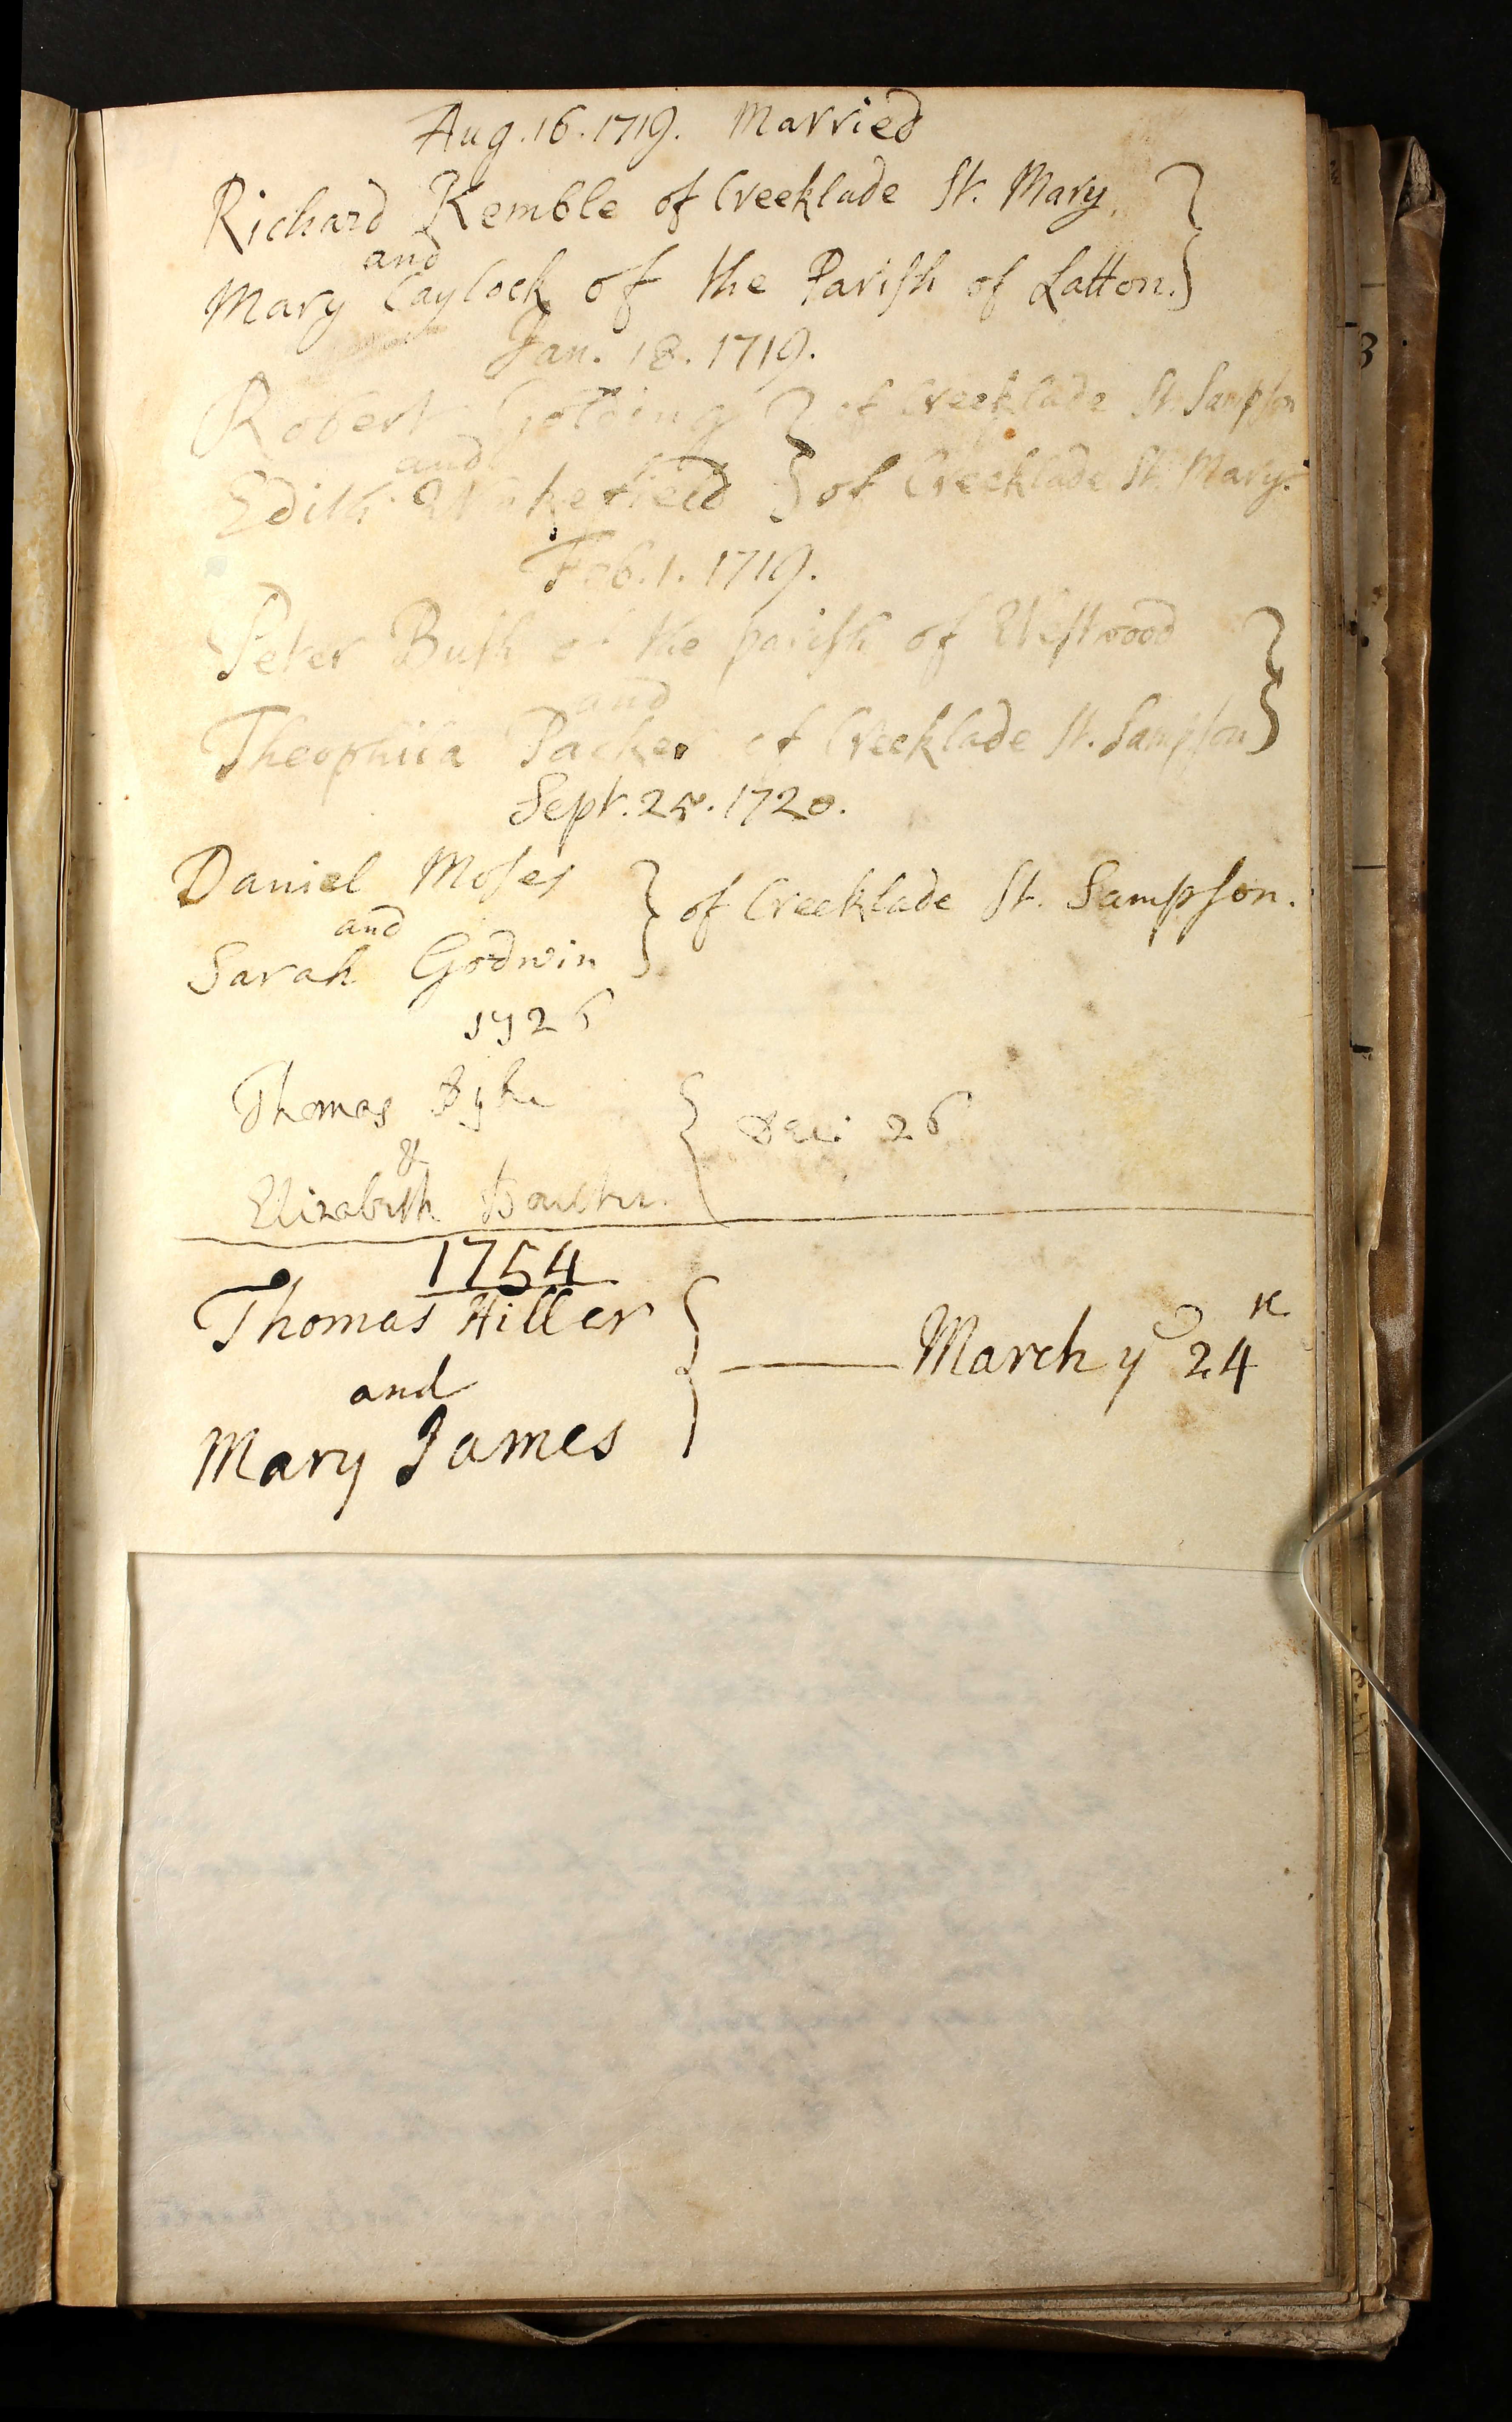 Aug. 16. 1719. Married
Richard Kemble of Creeklade St. Mary,
and
Mary Caylock of the Parish of Latton.
Jan. 18. 1719.
Robert Golding of Creeklade St. Sampson
and
Edith Wakefield of Creeklade St. Mary.
Feb. 1. 1719.
Peter Bush of the parish of Westwood
and
Theophila Packer of Creeklade St. Sampson
Sept. 25. 1720.
Daniel Moses
and
of Creeklade St. Sampson.
Sarah Godwin
1726
Thomas Dyke
Dec: 26
&
Elizabeth
1754
Thomas Hiller
March ye 24th
and
Mary James